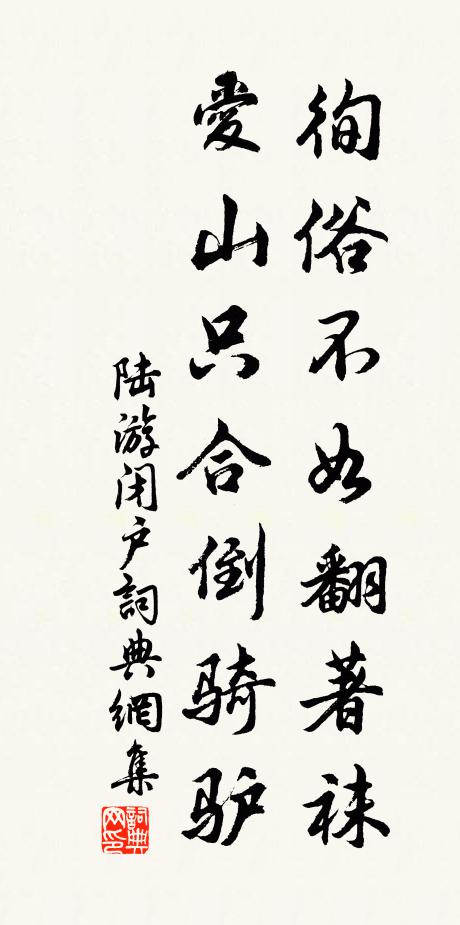 徇俗不如翻著袜
愛山只合倒骑驴
陆游闭户詞典網集
詞典网印